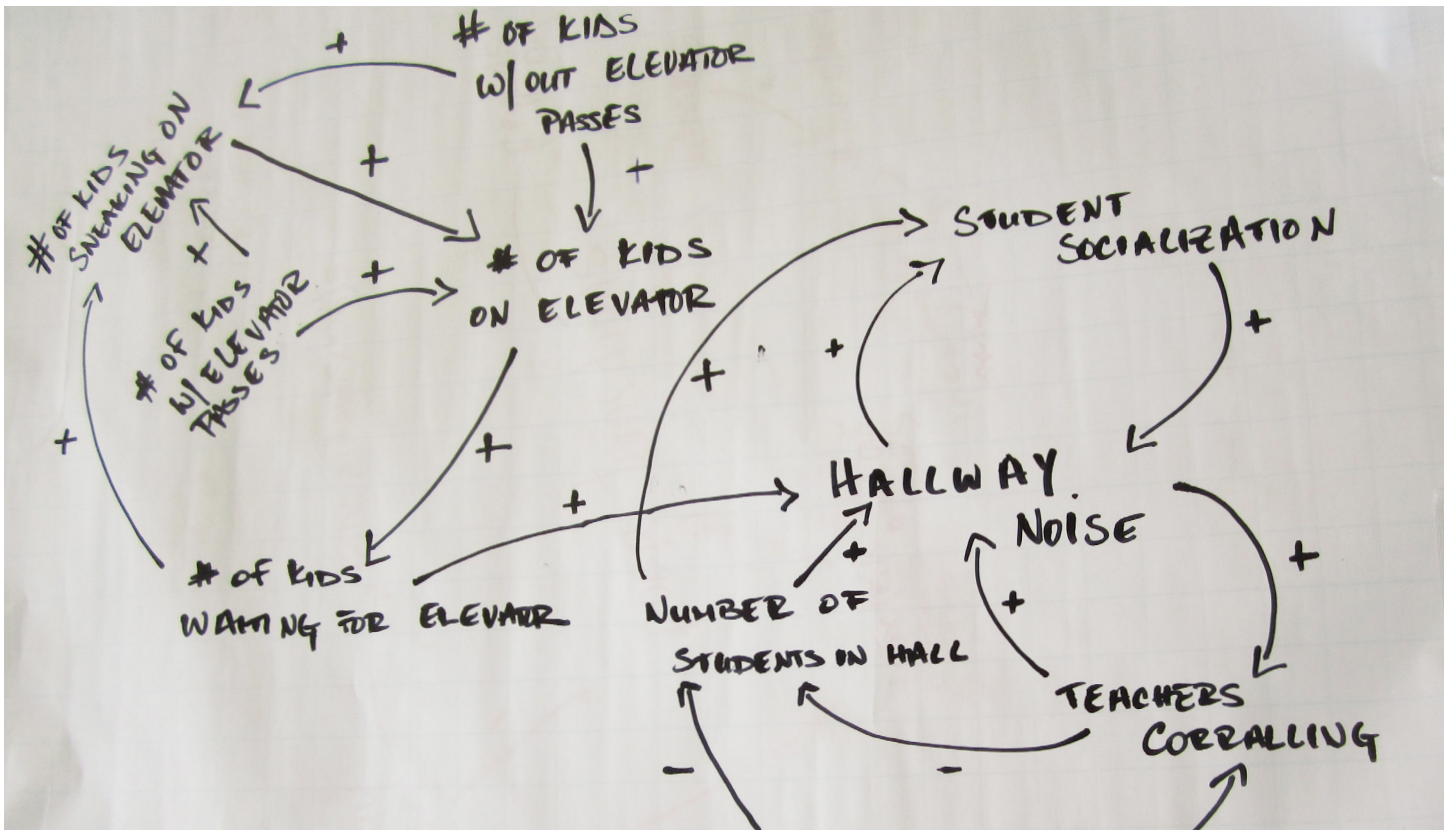 +
# OF KIDS
W/OUT ELEVATOR
PASSES
+
+
# OF KIDS
SNEAKING ON
ELEVATOR
+
# OF KIDS
W/ ELEVATOR
PASSES
+
# OF KIDS
ON ELEVATOR
STUDENT
SOCIALIZATION
+
+
+
+
+
+
HALLWAY
NOISE
+
# OF KIDS
WAITING FOR ELEVATOR
+
+
+
NUMBER OF
STUDENTS IN HALL
TEACHERS
CORRALLING
-
-